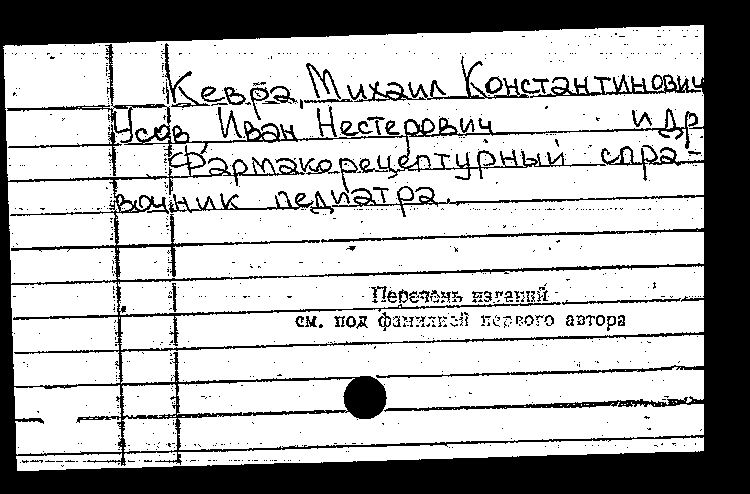 Кевра, Михаил Константинович
Усов, Иван Нестерович и др
Фармакорецептурный спра-
вочник педиатра.
Перечень изданий
см. под фамилией первого автора